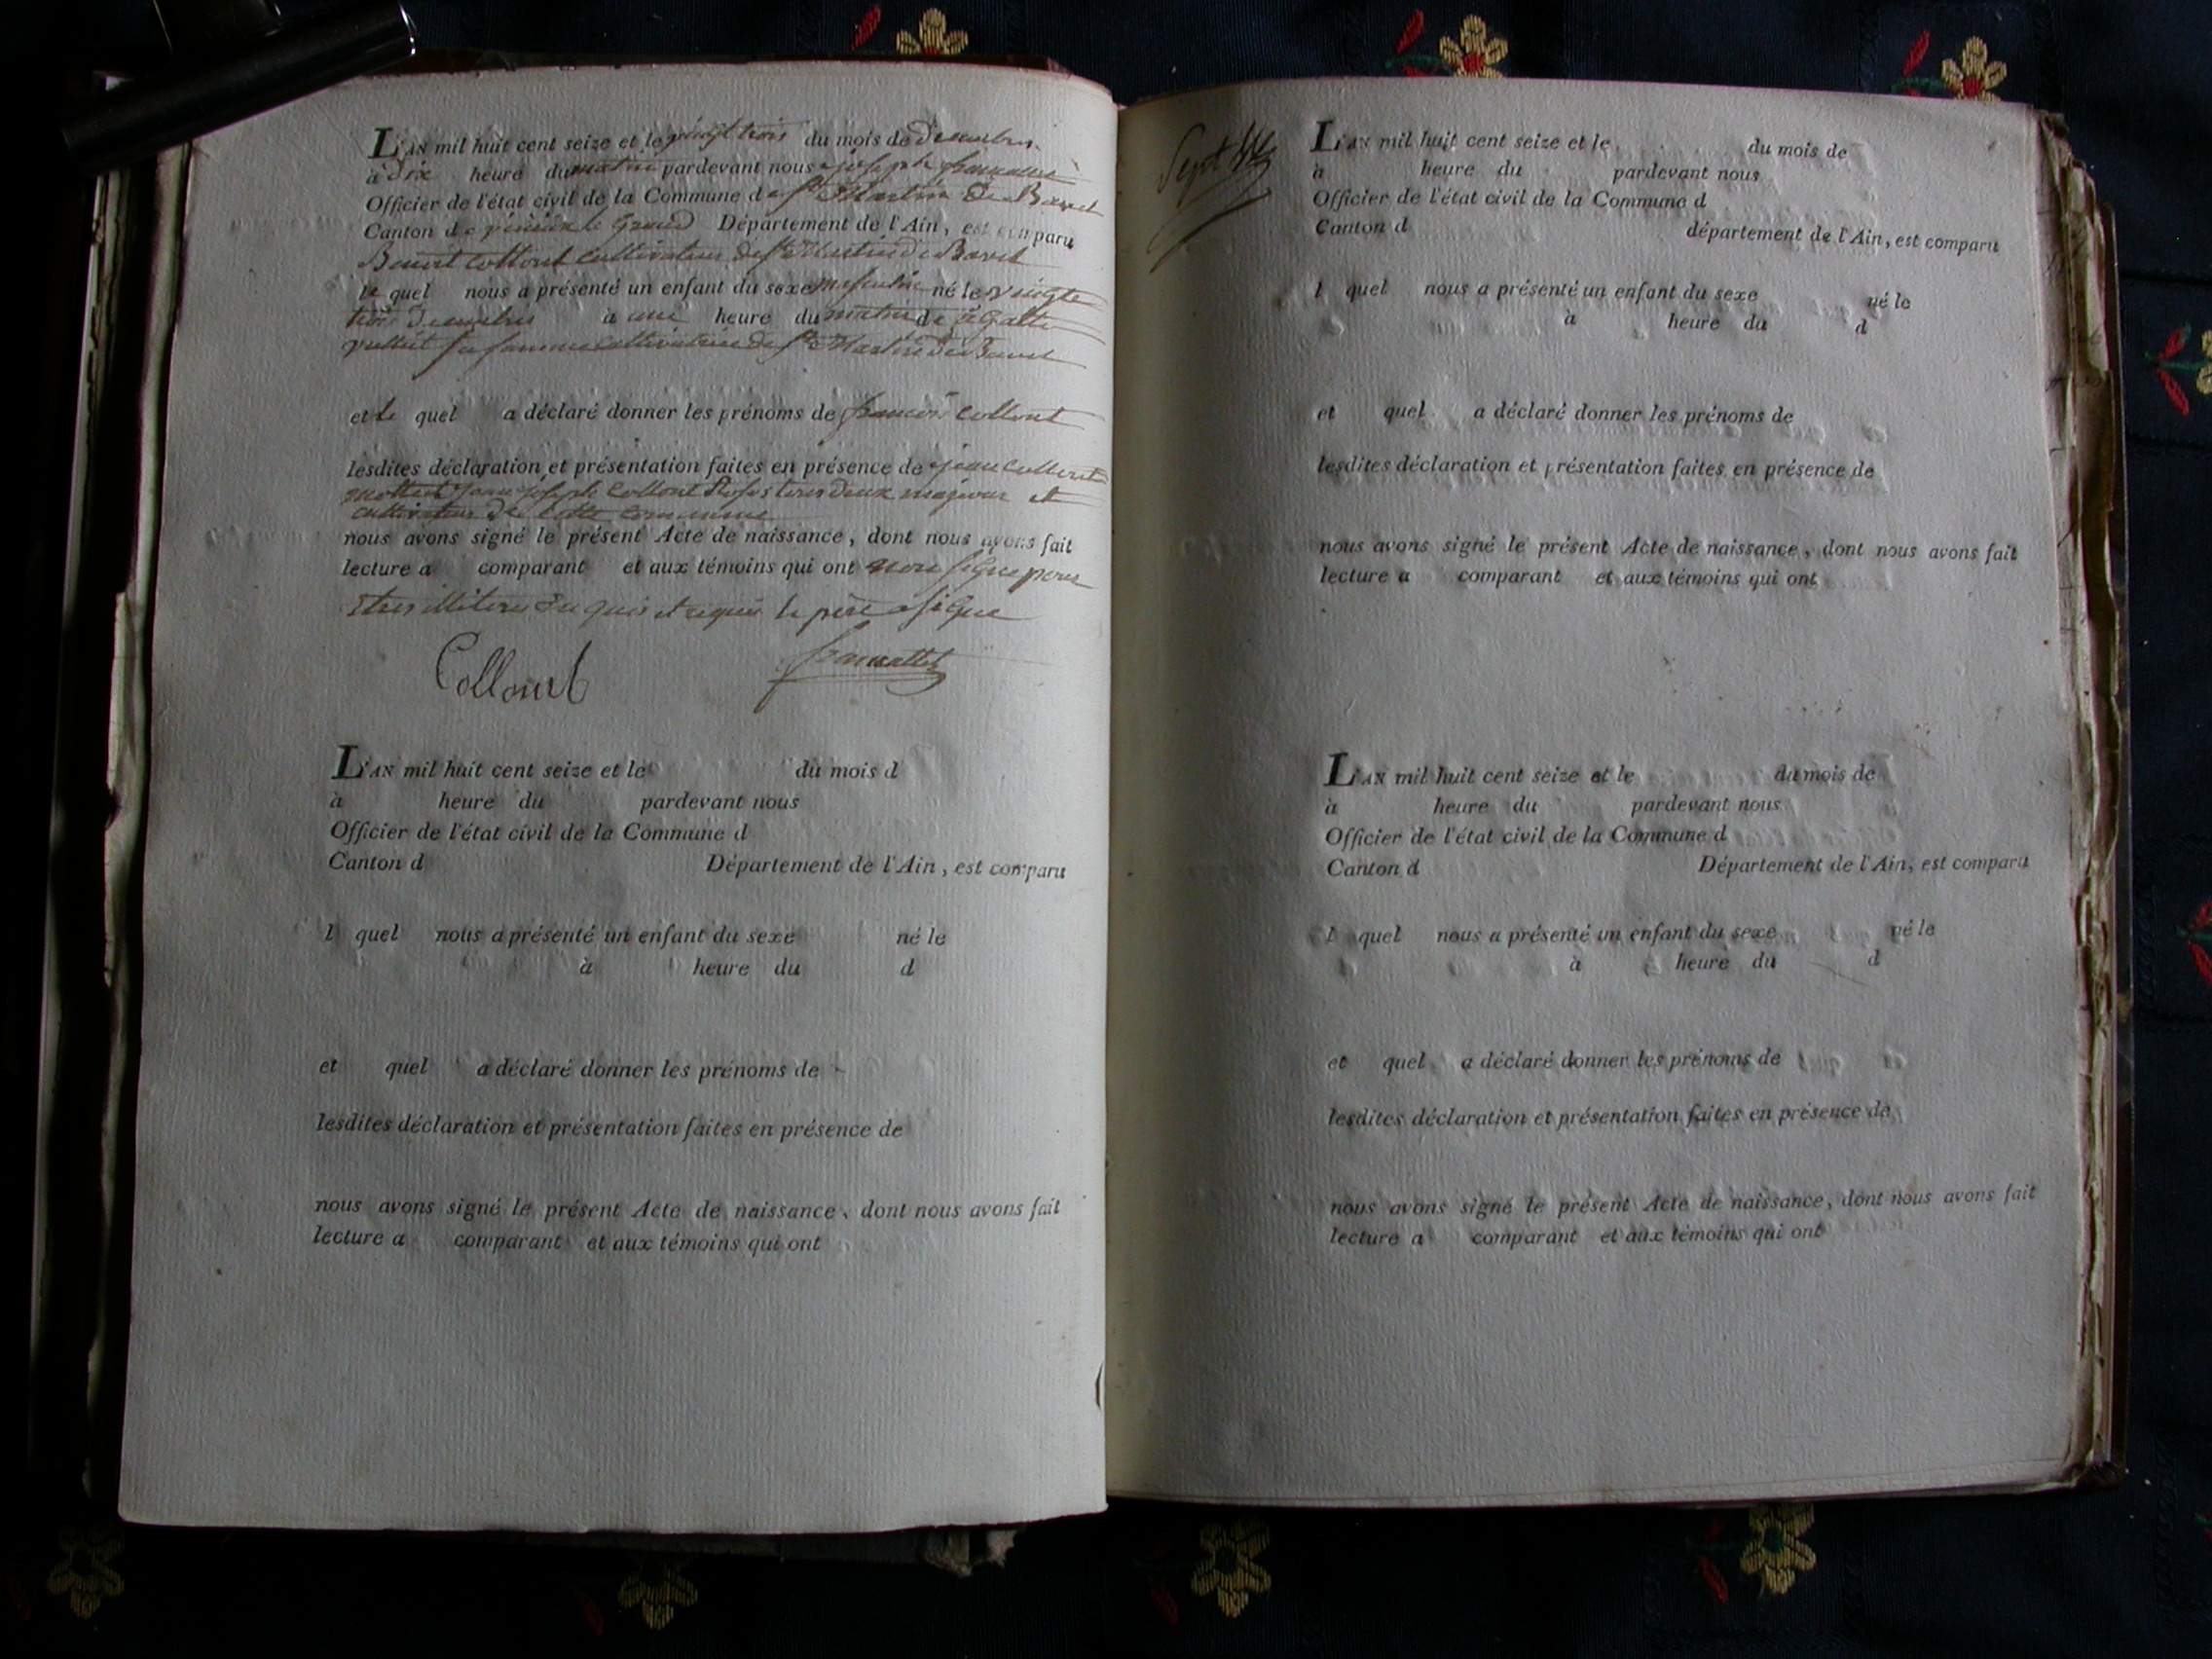 L'AN mil huit cent seize et le vingt trois du mois de Decembre
à Dix heure du matin pardevant nous joseph
Officier de l'état civil de la Commune de St Martin De Bavel
Canton de virieux le Grand Département de l'Ain, est comparu
Benoit Collont Cultivateur de St Martin De Bavel
le quel nous a présenté un enfant du sexe masculin né le vingte
trois Decembre à une heure du matin de
sa femme cultivatrice de St Martin De Bavel
et le quel a déclaré donner les prénoms de francois Collont
lesdites déclaration et présentation faites en présence de jean
joseph Collont tous deux majeur et
cultivateur de cette commune
nous avons signé le présent Acte de naissance, dont nous avons fait
lecture a comparant et aux témoins qui ont non signe pour
Etres de quis et requis le père a signe
Collont
L'AN mil huit cent seize et le du mois d
à heure du pardevant nous
Officier de l'état civil de la Commune d
Canton d Département de l'Ain, est comparu
l quel nous a présenté un enfant du sexe né le
à heure du d
et quel a déclaré donner les prénoms de
lesdites déclaration et présentation faites en présence de
nous avons signé le présent Acte de naissance, dont nous avons fait
lecture a comparant et aux témoins qui ont
Sept
L'AN mil huit cent seize et le du mois de
à heure du pardevant nous
Officier de l'état civil de la Commune d
Canton d département de l'Ain, est comparu
l quel nous a présenté un enfant du sexe né le
à heure du d
et quel a déclaré donner les prénoms de
lesdites déclaration et présentation faites en présence de
nous avons signé le présent Acte de naissance, dont nous avons fait
lecture a comparant et aux témoins qui ont
L'AN mil huit cent seize et le du mois de
à heure du pardevant nous
Officier de l'état civil de la Commune d
Canton d Département de l'Ain, est comparu
l quel nous a présenté un enfant du sexe né le
à heure du d
et quel a déclaré donner les prénoms de
lesdites déclaration et présentation faites en présence de
nous avons signé le présent Acte de naissance, dont nous avons fait
lecture a comparant et aux témoins qui ont